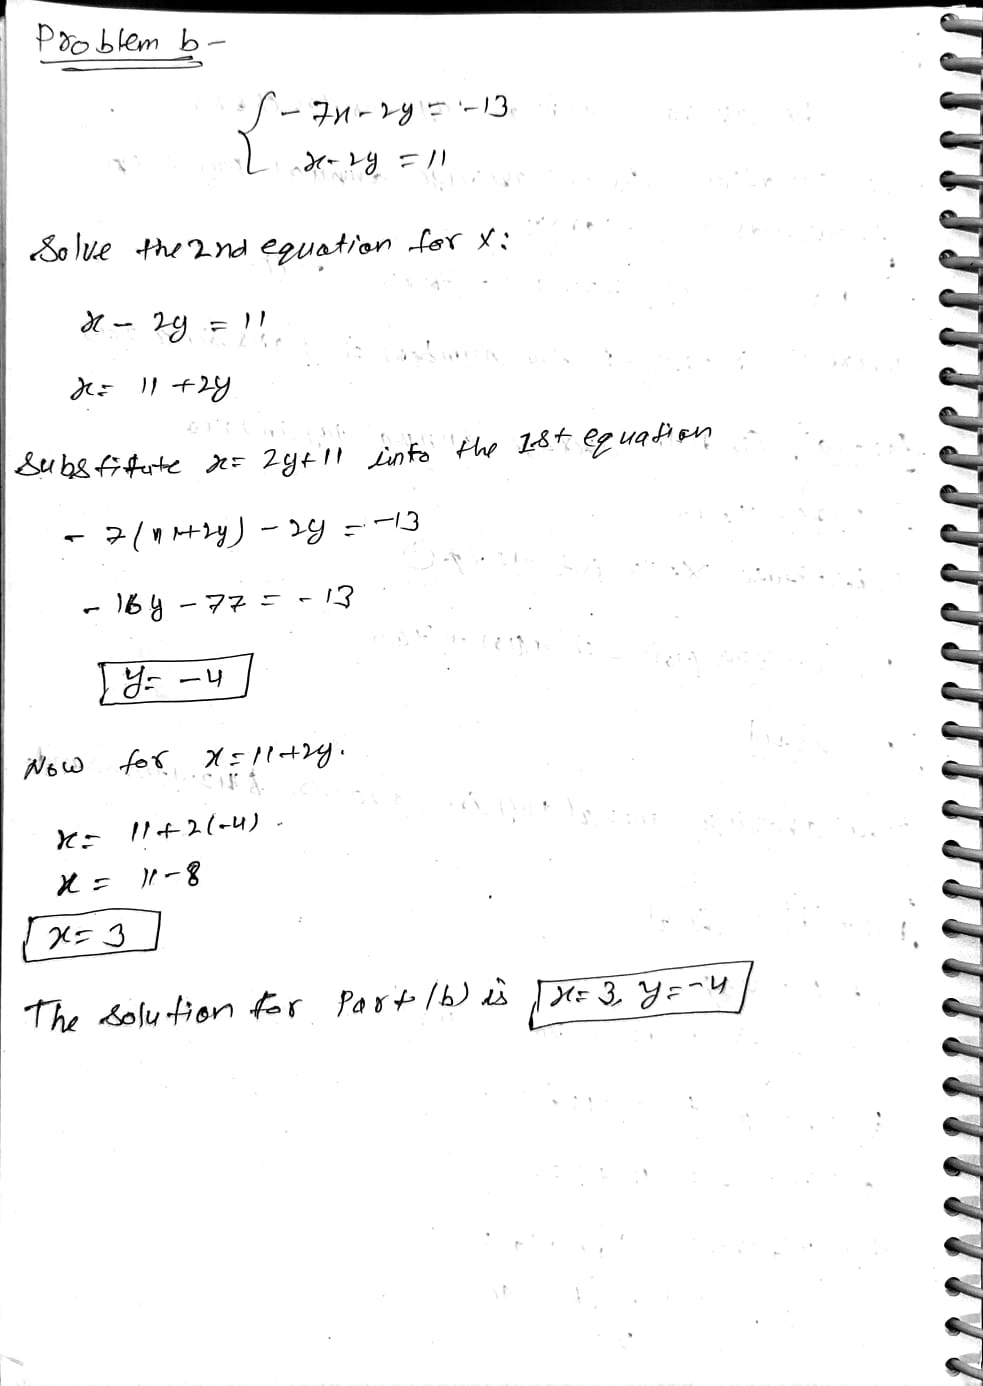 Problem b-
{ -7x-2y = -13
x-2y = 11
Solve the 2nd equation for x:
x - 2y = 11
x = 11 + 2y
Substitute x = 2y+11 into the 1st equation
- 7(11+2y) - 2y = -13
- 16y - 77 = -13
y = -4
Now for x = 11+2y.
x = 11+2(-4).
x = 11-8
x = 3
The solution for Part (b) is x=3, y=-4